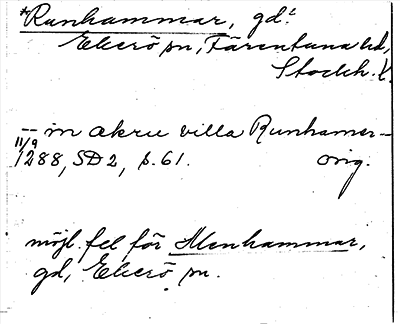 *Runhammar, gd?
Ekerö sn, Färentuna hd,
Stockh. l.
— in akru villa Runhamer —
11/9
1288, SD 2, s. 61. orig.
möjl. fel för Menhammar,
gd, Ekerö sn.